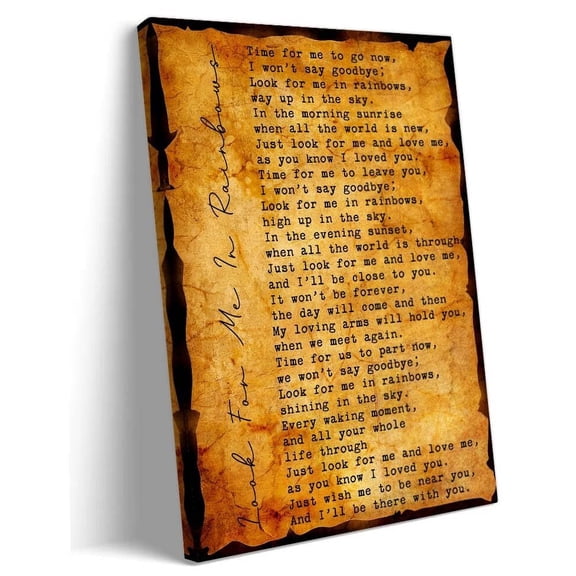 Look For Me In Rainbows
Time for me to go now,
I won't say goodbye;
Look for me in rainbows,
way up in the sky.
In the morning sunrise
when all the world is new,
Just look for me and love me,
as you know I loved you.
Time for me to leave you,
I won't say goodbye;
Look for me in rainbows,
high up in the sky.
In the evening sunset,
when all the world is through,
Just look for me and love me,
and I'll be close to you.
It won't be forever,
the day will come and then
My loving arms will hold you,
when we meet again.
Time for us to part now,
we won't say goodbye;
Look for me in rainbows,
shining in the sky.
Every waking moment,
and all your whole
life through
Just look for me and love me,
as you know I loved you.
Just wish me to be near you,
And I'll be there with you.